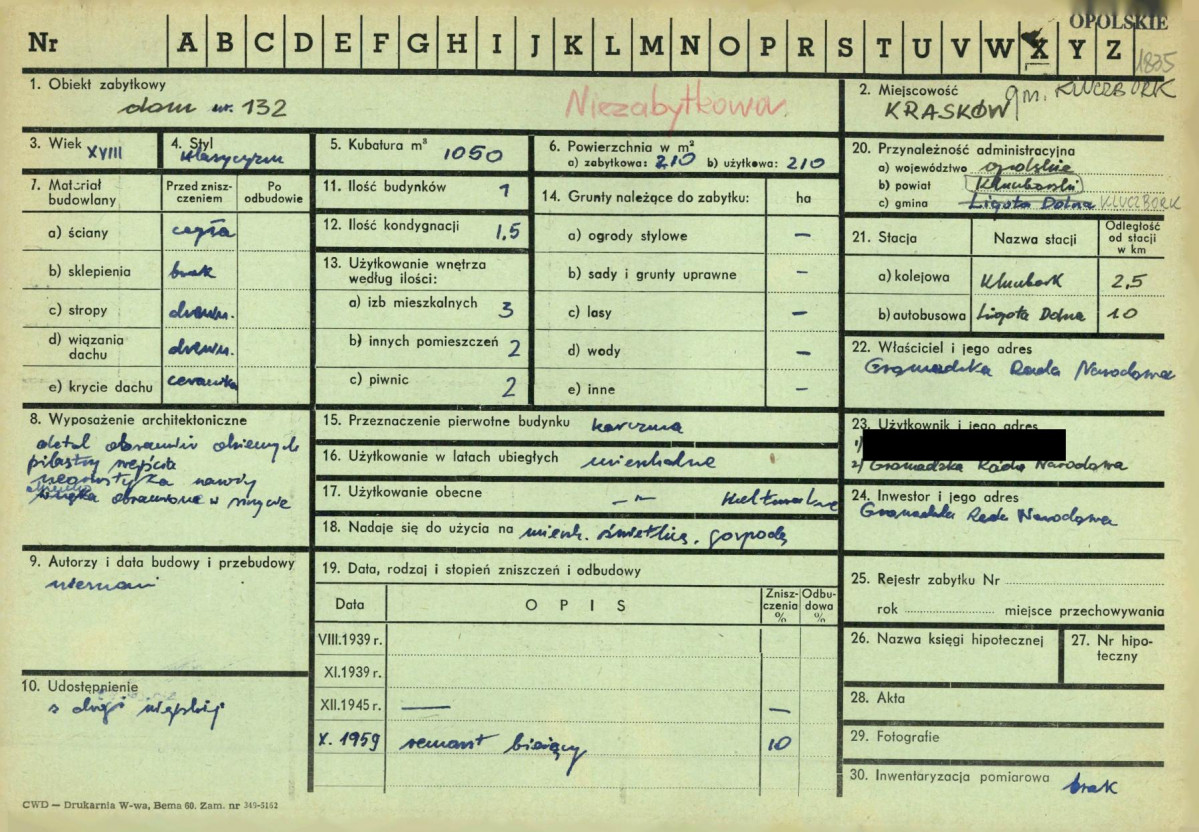 OPOLSKIE
Nr A B C D E F G H I J K L M N O P R S T U V W X Y Z
1835
1. Obiekt zabytkowy
dom nr. 132
Niezabytkowa
2. Miejscowość
gm. KLUCZBORK
KRASKÓW
3. Wiek XVIII
4. Styl
klasycyzm
5. Kubatura m³ 1050
6. Powierzchnia w m²
a) zabytkowa: 210 b) użytkowa: 210
20. Przynależność administracyjna
a) województwo opolskie
b) powiat Kluczborski
c) gmina Ligota Dolna KLUCZBORK
7. Materiał budowlany
Przed zniszczeniem
Po odbudowie
a) ściany cegła
b) sklepienia brak
c) stropy drewn.
d) wiązania dachu drewn.
e) krycie dachu ceramika
11. Ilość budynków 1
12. Ilość kondygnacji 1,5
13. Użytkowanie wnętrza
według ilości:
a) izb mieszkalnych 3
b) innych pomieszczeń 2
c) piwnic 2
14. Grunty należące do zabytku: ha
a) ogrody stylowe –
b) sady i grunty uprawne –
c) lasy –
d) wody –
e) inne –
21. Stacja
Nazwa stacji
Odległość od stacji w km
a) kolejowa Kluczbork 2,5
b) autobusowa Ligota Dolna 10
22. Właściciel i jego adres
Gromadzka Rada Narodowa
8. Wyposażenie architektoniczne
detal obramień okiennych
pilastry wejścia
wnęka obramiona w niszce
15. Przeznaczenie pierwotne budynku karczma
16. Użytkowanie w latach ubiegłych mieszkalne
17. Użytkowanie obecne –"– kulturalne
18. Nadaje się do użycia na mieszk. świetlicę, gospodę
23. Użytkownik i jego adres
1)
2) Gromadzka Rada Narodowa
24. Inwestor i jego adres
Gromadzka Rada Narodowa
9. Autorzy i data budowy i przebudowy
nieznani
19. Data, rodzaj i stopień zniszczeń i odbudowy
Data
OPIS
Zniszczenia %
Odbudowa %
VIII.1939 r.
XI.1939 r.
XII.1945 r. — –
X. 1959 remont bieżący 10
25. Rejestr zabytku Nr
rok miejsce przechowywania
26. Nazwa księgi hipotecznej
27. Nr hipoteczny
10. Udostępnienie
z drogi wiejskiej
28. Akta
29. Fotografie
30. Inwentaryzacja pomiarowa brak
CWD — Drukarnia W-wa, Bema 60. Zam. nr 345-5162